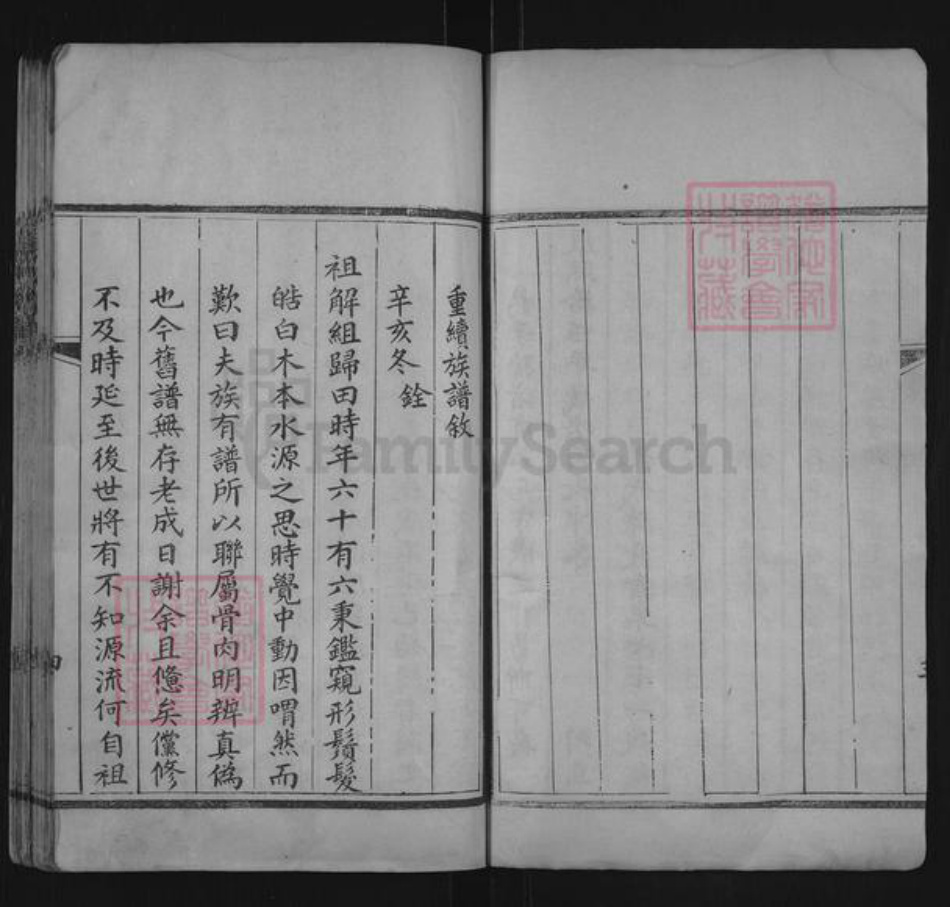 重續族譜敘
辛亥冬 銓
祖解組歸田時年六十有六秉鑑窺形鬚髮
皓白木本水源之思時覺中動因喟然而
歎曰夫族有譜所以聯屬骨肉明辨真偽
也今舊譜無存老成日謝余且憊矣儻修
不及時延至後世將有不知源流何自祖
四
FamilySearch